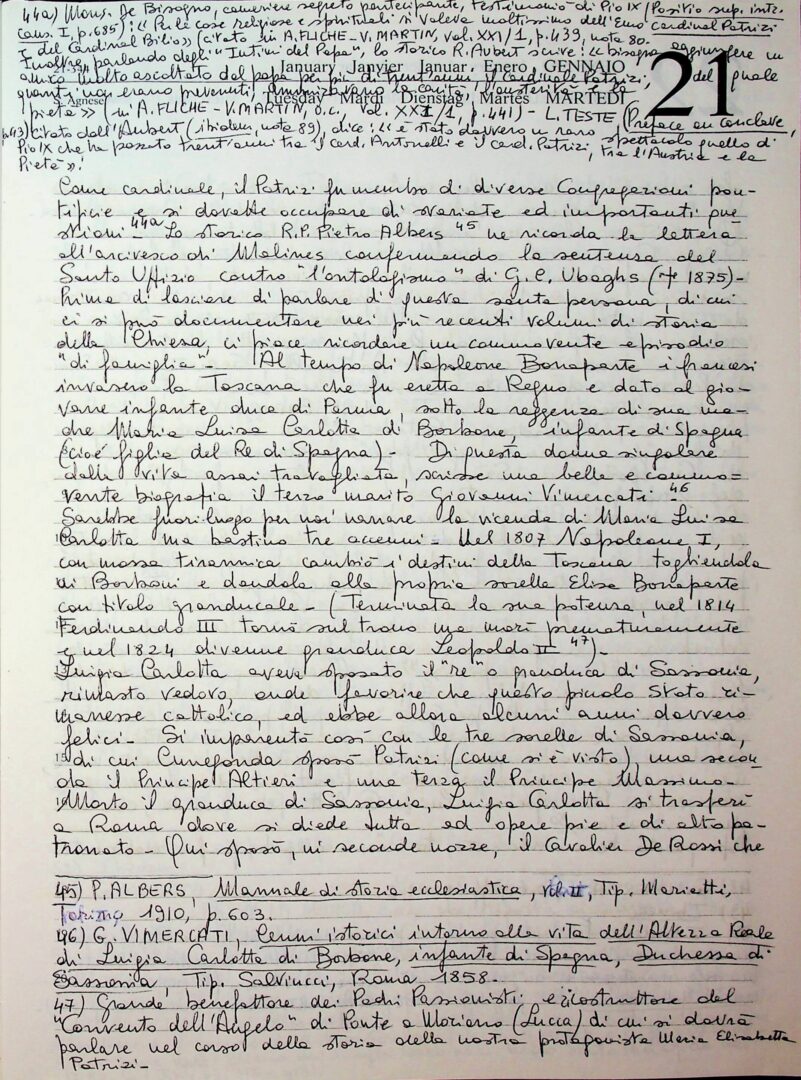 44a) Mons. De Bisogno, cameriere segreto partecipante, testimoniò di Pio IX (Positio sup. intr.
caus. I, p. 685): «Per le cose religiose e spirituali si valeva moltissimo dell'Emo Cardinal Patrizi
e del Cardinal Bilio» (citato in A. FLICHE - V. MARTIN, vol. XXI/1, p. 439, nota 80.
Inoltre, parlando degli "Intimi del Papa", lo storico R. Aubert scrive: «bisogna aggiungere un
amico molto ascoltato dal papa per più di trent'anni, il Cardinale Patrizi, del quale
quanti non erano prevenuti, ammiravano la carità, l'austerità e la
pietà» (in A. FLICHE - V. MARTIN, o.c., vol. XXI/1, p. 441) - L. TESTE (Préface au Conclave,
p. 43) citato dall'Aubert (ibidem, nota 89), dice: «è stato davvero un raro spettacolo quello di
Pio IX che ha passato trent'anni tra il card. Antonelli e il card. Patrizi, tra l'Austria e la
Pietà»!
January Janvier Januar Enero GENNAIO
21
S. Agnese
Tuesday Mardi Dienstag Martes MARTEDÌ
Come cardinale, il Patrizi fu membro di diverse Congregazioni pon-
tificie e si dovette occupare di svariate ed importanti que
stioni - 44a Lo storico R.P. Pietro Albers 45 ne ricorda la lettera
all'arcivesco di Malines confermando la sentenza del
Santo Uffizio contro "l'ontologismo" di G. C. Ubaghs († 1875) -
Prima di lasciare di parlare di questa santa persona, di cui
ci si può documentare nei più recenti volumi di storia
della Chiesa, ci piace ricordare un commovente episodio
"di famiglia" - Al tempo di Napoleone Bonaparte i francesi
invasero la Toscana che fu eretta a Regno e dato al gio-
vane infante duca di Parma, sotto la reggenza di sua ma-
dre Maria Luisa Carlotta di Borbone, infante di Spagna
(cioè figlia del Re di Spagna) - Di questa donna singolare
dalla vita assai travagliata, scrisse una bella e commo=
vente biografia il terzo marito Giovanni Vimercati 46
Sarebbe fuori luogo per noi narrare la vicenda di Maria Luisa
Carlotta ma bastino tre accenni - Nel 1807 Napoleone I,
con mossa tirannica cambiò i destini della Toscana togliendola
ai Borboni e dandola alla propria sorella Elisa Bonaparte
con titolo granducale - (Terminata la sua potenza, nel 1814
Ferdinando III tornò sul trono ma morì prematuramente
e nel 1824 divenne granduca Leopoldo II 47) -
Luigia Carlotta aveva sposato il "re" o granduca di Sassonia,
rimasto vedovo, onde favorire che questo piccolo Stato ri-
manesse cattolico, ed ebbe allora alcuni anni davvero
felici - Si imparentò così con le tre sorelle di Sassonia,
di cui Cunegonda sposò Patrizi (come si è visto), una secon
da il Principe Altieri e una terza il Principe Massimo -
Morto il granduca di Sassonia, Luigia Carlotta si trasferì
a Roma dove si diede tutta ad opere pie e di alto pa-
tronato - Qui sposò, in seconde nozze, il Cavalier De Rossi che
45) P. ALBERS, Mannale di storia ecclesiastica, vol. II, Tip. Marietti,
Torino 1910, p. 603.
46) G. VIMERCATI, Cenni istorici intorno alla vita dell'Altezza Reale
di Luigia Carlotta di Borbone, infante di Spagna, Duchessa di
Sassonia, Tip. Salviucci, Roma 1858 -
47) Grande benefattore dei Padri Passionisti e ricostruttore del
"Convento dell'Angelo" di Ponte a Moriano (Lucca) di cui si dovrà
parlare nel corso della storia della nostra protagonista Maria Elisabetta
Patrizi -